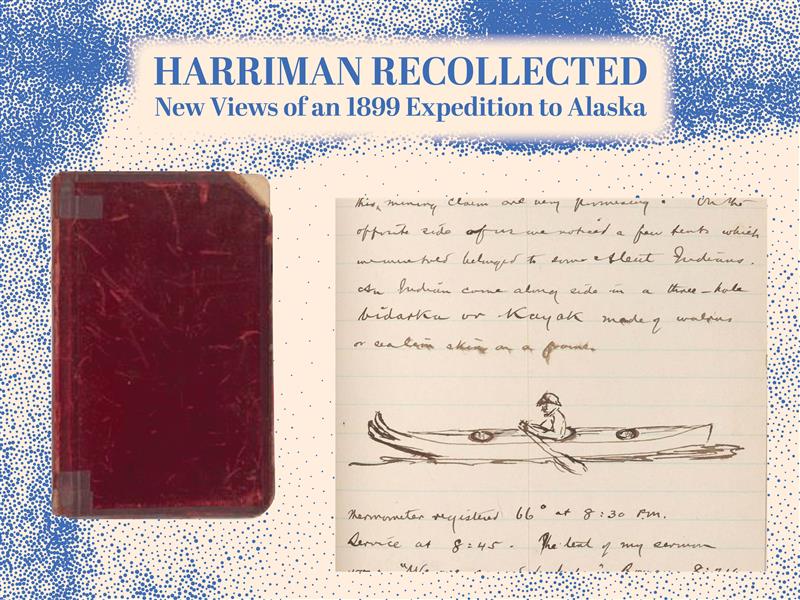 HARRIMAN RECOLLECTED
New Views of an 1899 Expedition to Alaska
this mining claim are very promising. On the
opposite side of us we noticed a few tents which
belonged to some Aleut Indians.
An Indian came along side in a three-hole
bidarka or Kayak made of walrus
or sea lion skin on a frame.
Thermometer registered 66° at 8:30 P.M.
Service at 8:45. The text of my sermon